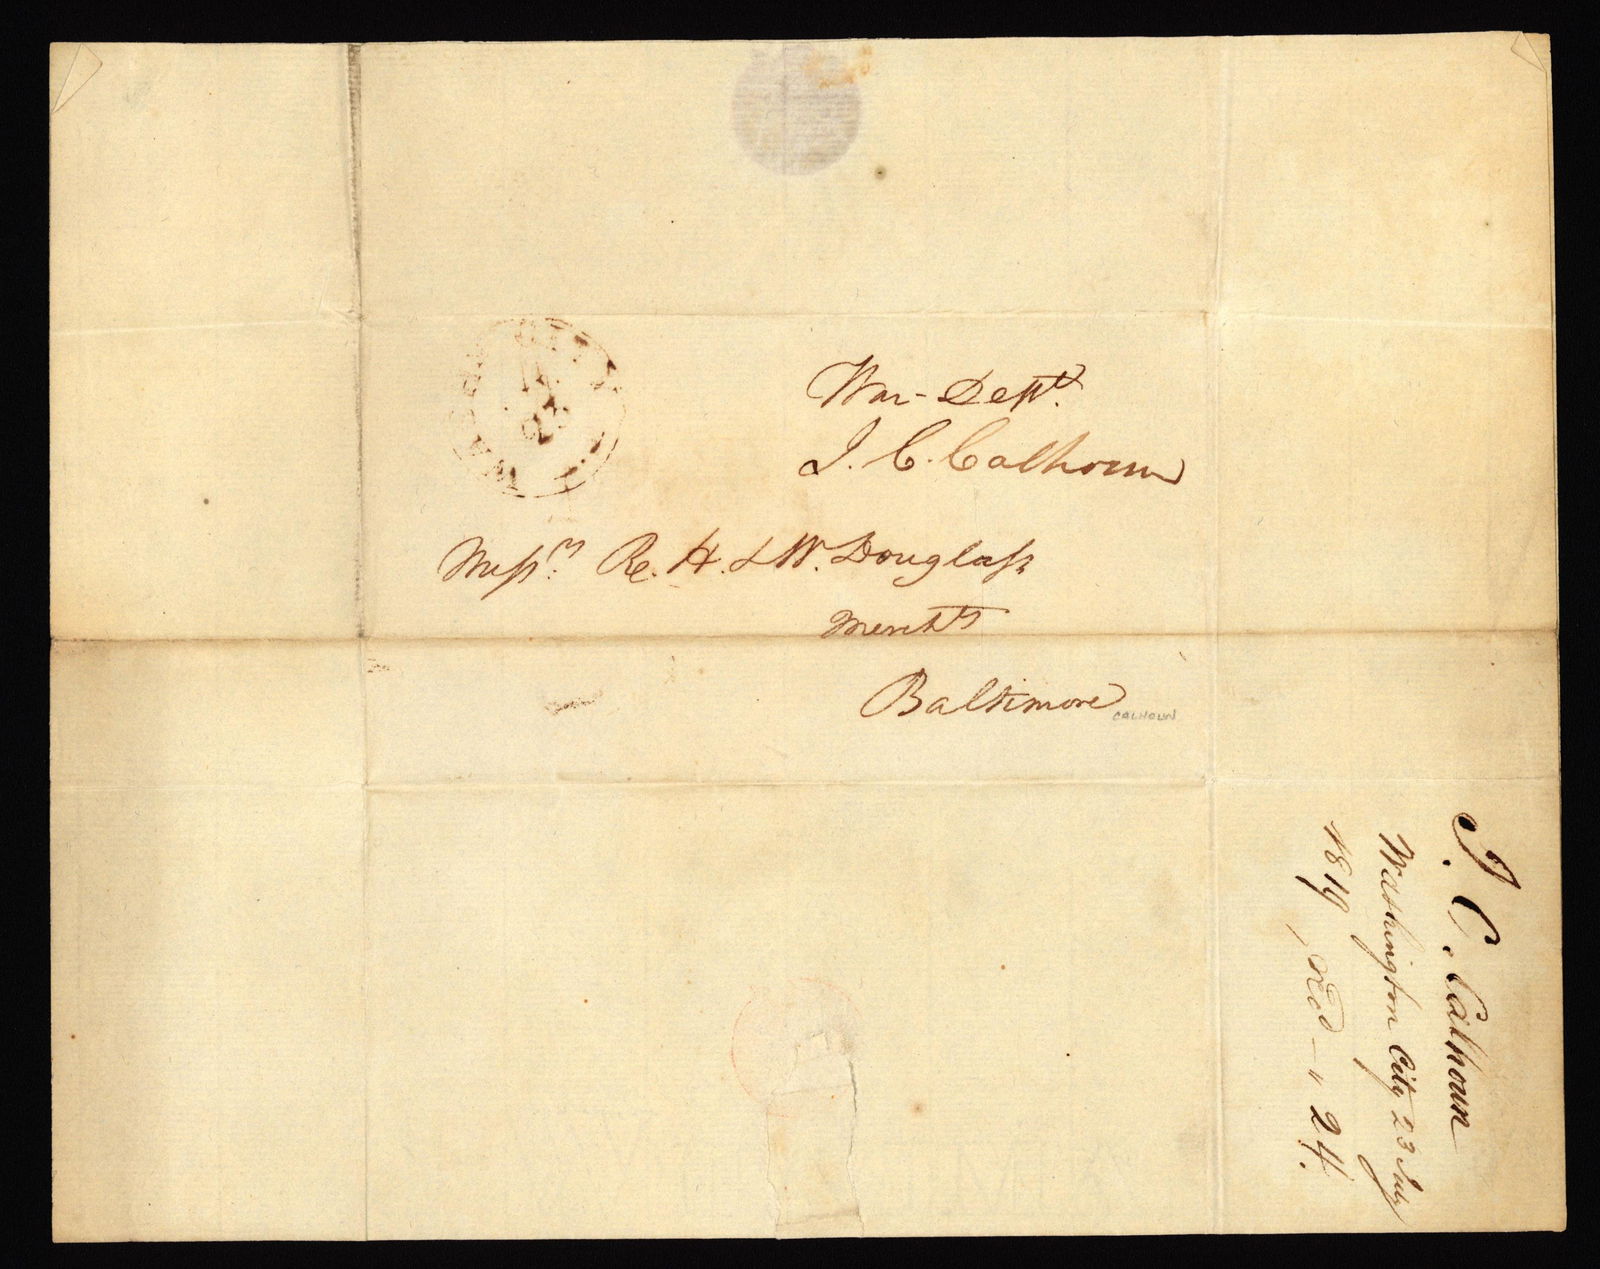 War-Dept.
J. C. Calhoun
Messrs. R. H. & W. Douglass
Merchts
Baltimore
CALHOUN
J. C. Calhoun
Washington City 23 July
1819, recd — " 24.